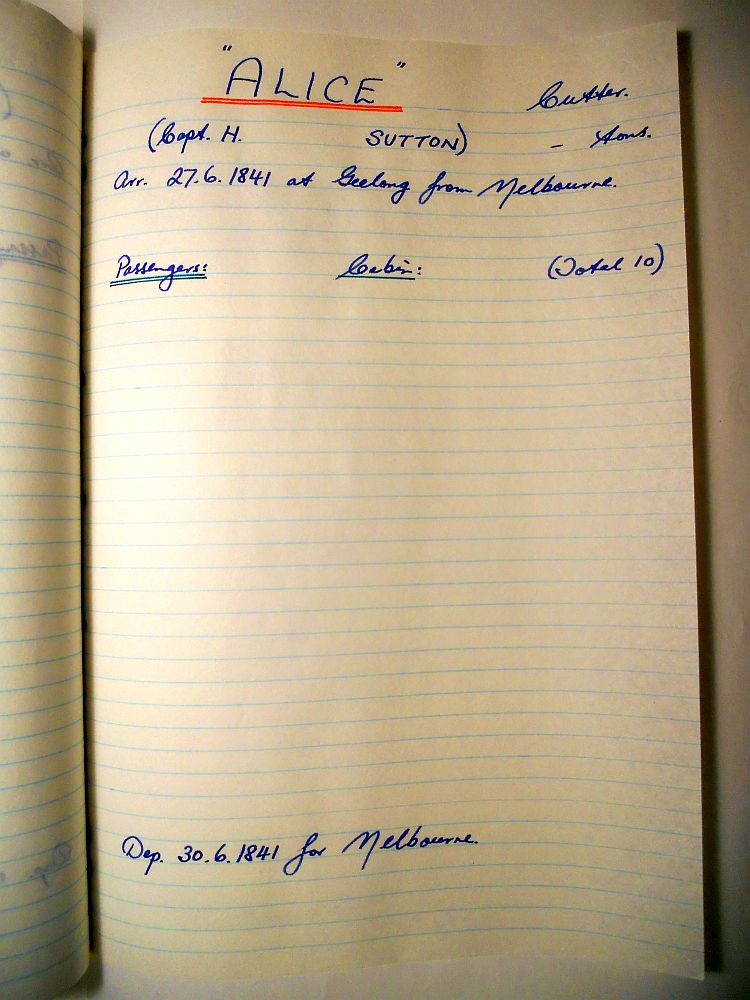 "ALICE"
Cutter.
(Capt. H. SUTTON) – tons.
Arr. 27.6.1841 at Geelong from Melbourne.
Passengers: Cabin: (Total 10)
Dep. 30.6.1841 for Melbourne.